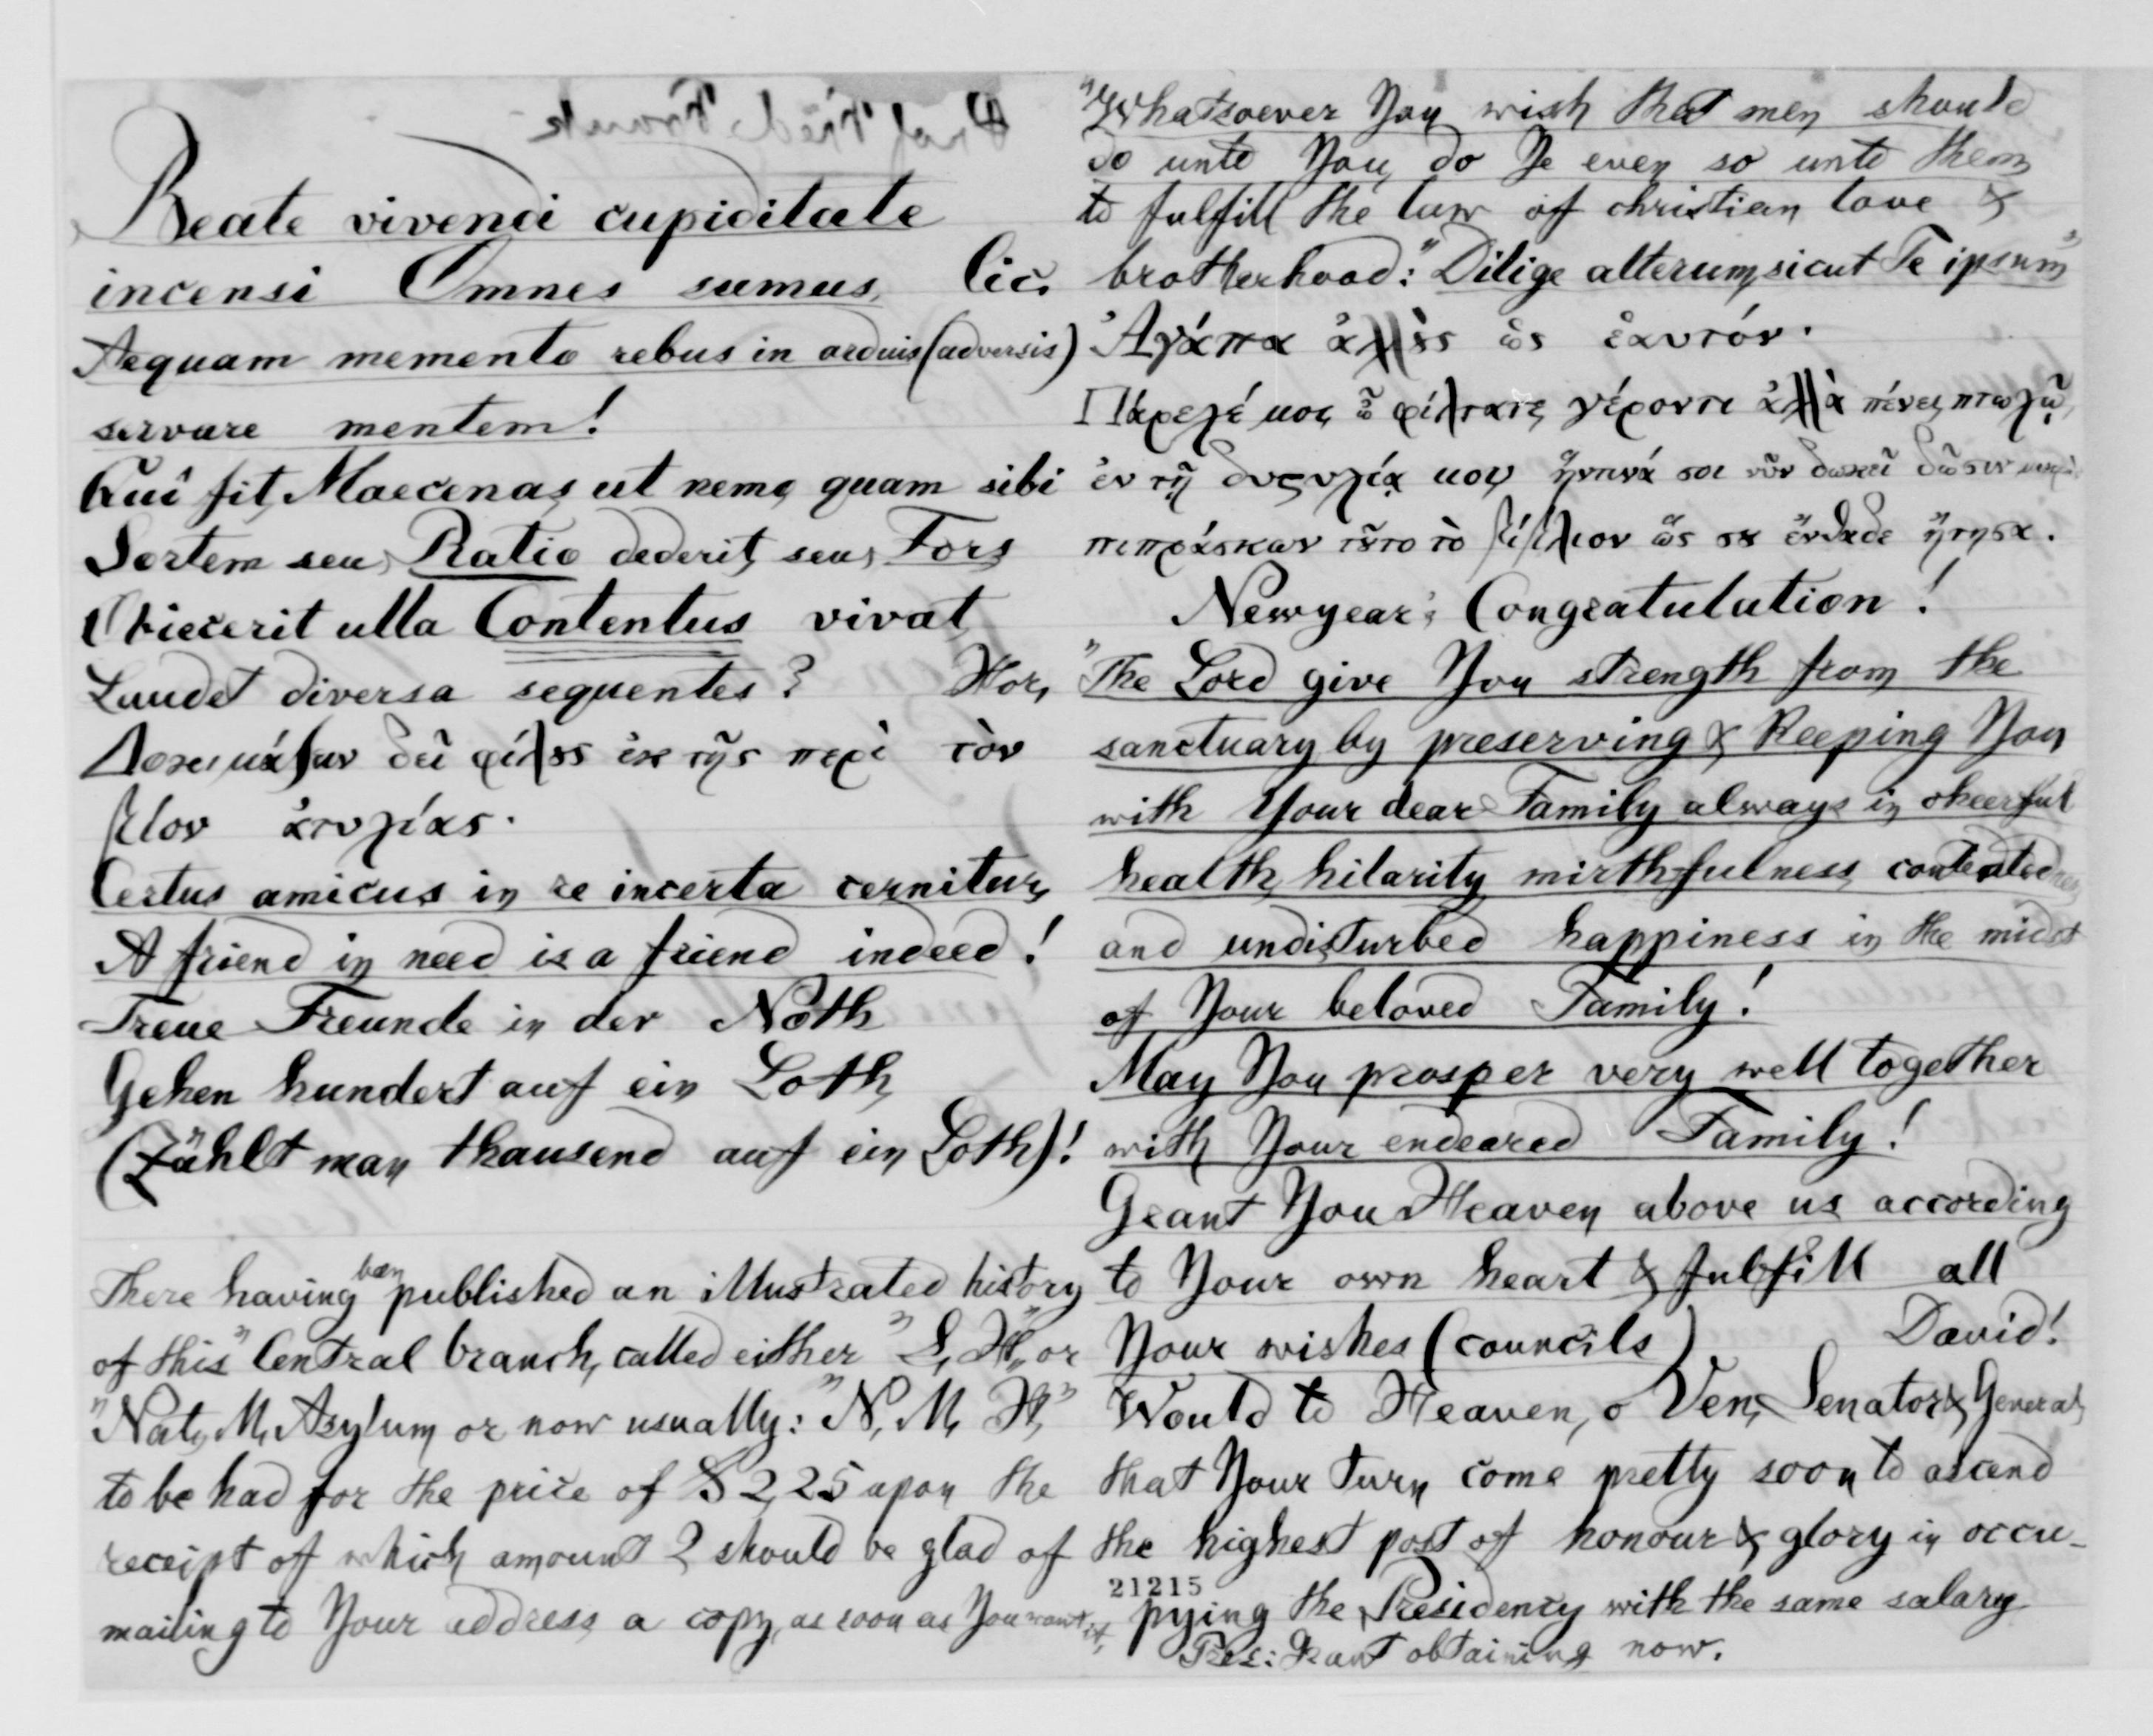 Beate vivendi cupiditate
incensi Omnes sumus, Cic.
Aequam memento rebus in arduis (adversis)
servare mentem!
Qui fit, Maecenas, ut nemo, quam sibi
Sortem seu Ratio dederit, seu Fors
Obiecerit ulla Contentus vivat
Laudet diversa sequentes? Hor,
δεῖ φίλȣς ἐκ τῆς περὶ τὸν
βίον ἀτυχίας.
Certus amicus in re incerta cernitur,
A friend in need is a friend indeed!
Treue Freunde in der Noth
Gehen hundert auf ein Loth,
(Zählt man thausend auf ein Loth)!
There having been published an illustrated history
of this "Central branch, called either "S, H," or
"Nat, M, Asylum or now usually: "N, M, H,"
to be had for the price of $2,25 upon the
receipt of which amount I should be glad of
mailing to Your address a copy, as soon as You want it,
"Whatsoever You wish that men should
do unto You, do Ye even so unto them
to fulfill the law of christian love &
brotherhood: "Dilige alterum, sicut Te ipsum"
Ἀγάπα ἄλλȣς ὡς ἑαυτόν.
ὦ φίλτατε γέροντι ἀλλὰ πένει πτωχῷ,
ἐν τῇ δυςυχίᾳ μου ἥντινά σοι νῦν
πιπράσκων τȣτο τὸ βίβλιον ὥς σε ἐνθάδε ᾔτησα.
Newyear's Congratulation!
"The Lord give You strength from the
sanctuary by preserving & keeping You
with Your dear Family always in cheerful
health, hilarity, mirthfulness, contentedness,
and undisturbed happiness in the midst
of Your beloved Family!
May You prosper very well together
with Your endeared Family!
Grant You Heaven above us according
to Your own heart & fulfill all
Your wishes (councils) David!
Would to Heaven, o Ven, Senator & General,
that Your turn come pretty soon to ascend
the highest post of honour & glory in occu-
21215
pying the Presidency with the same salary
Pres: Grant obtaining now.